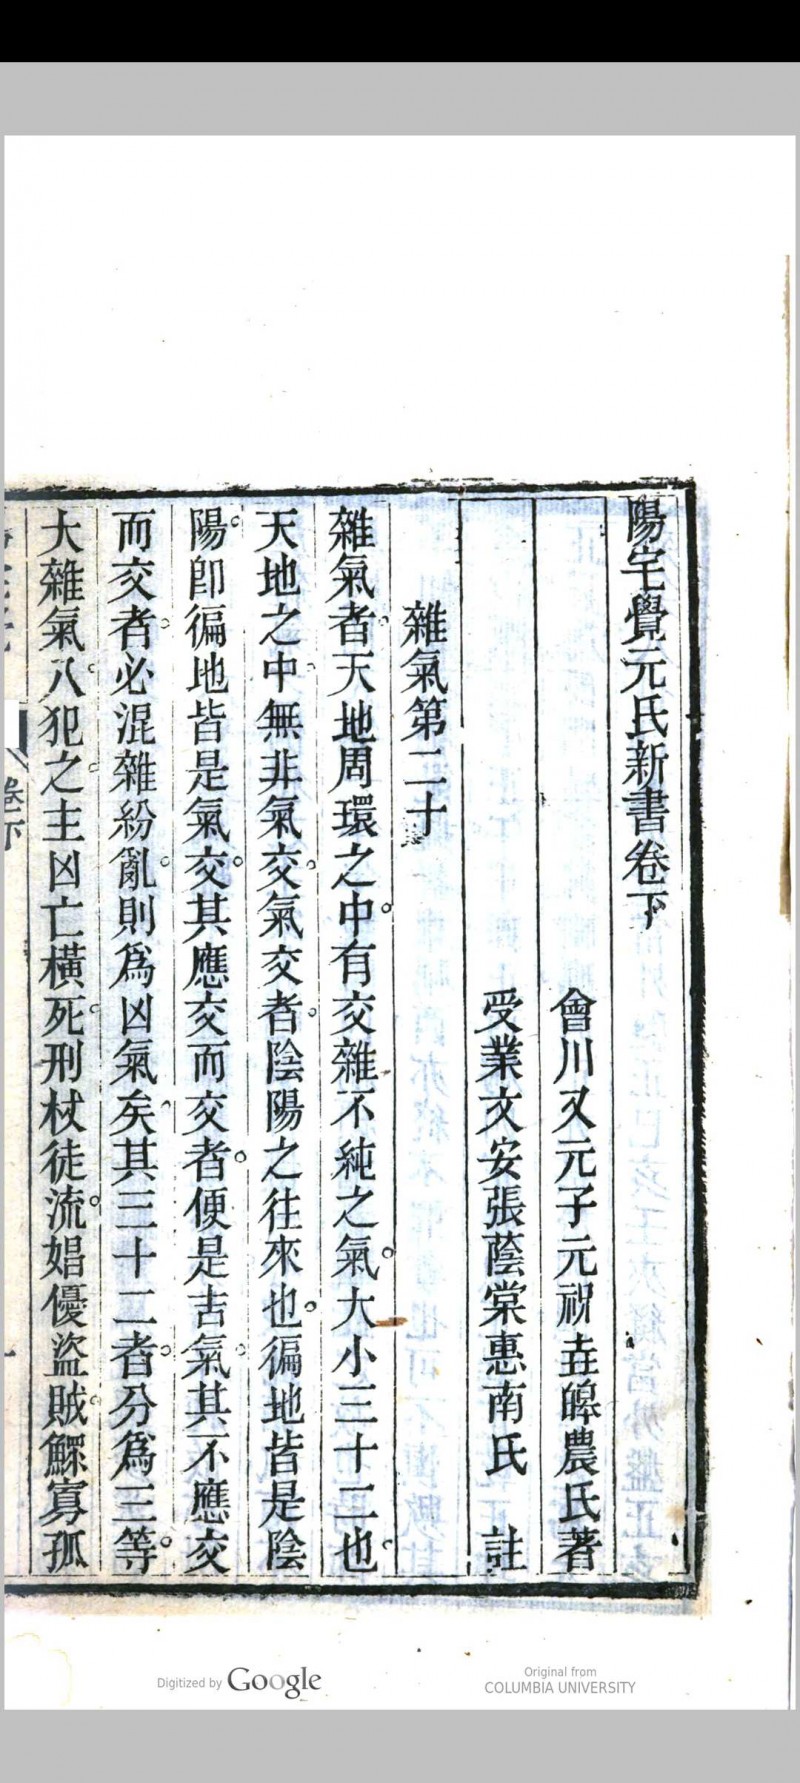 陽宅覺元氏新書卷下
會川又元子元祝垚皞農氏著
受業文安張蔭棠惠南氏 註
雜氣第二十
雜氣者天地周環之中有交雜不純之氣大小三十二也
天地之中無非氣交氣交者陰陽之往來也徧地皆是陰
陽卽徧地皆是氣交其應交而交者便是吉氣其不應交
而交者必混雜紛亂則爲凶氣矣其三十二者分爲三等
大雜氣八犯之主凶亡橫死刑杖徒流娼優盜賊鰥寡孤
卷下
Digitized by Google
Original from
COLUMBIA UNIVERSITY